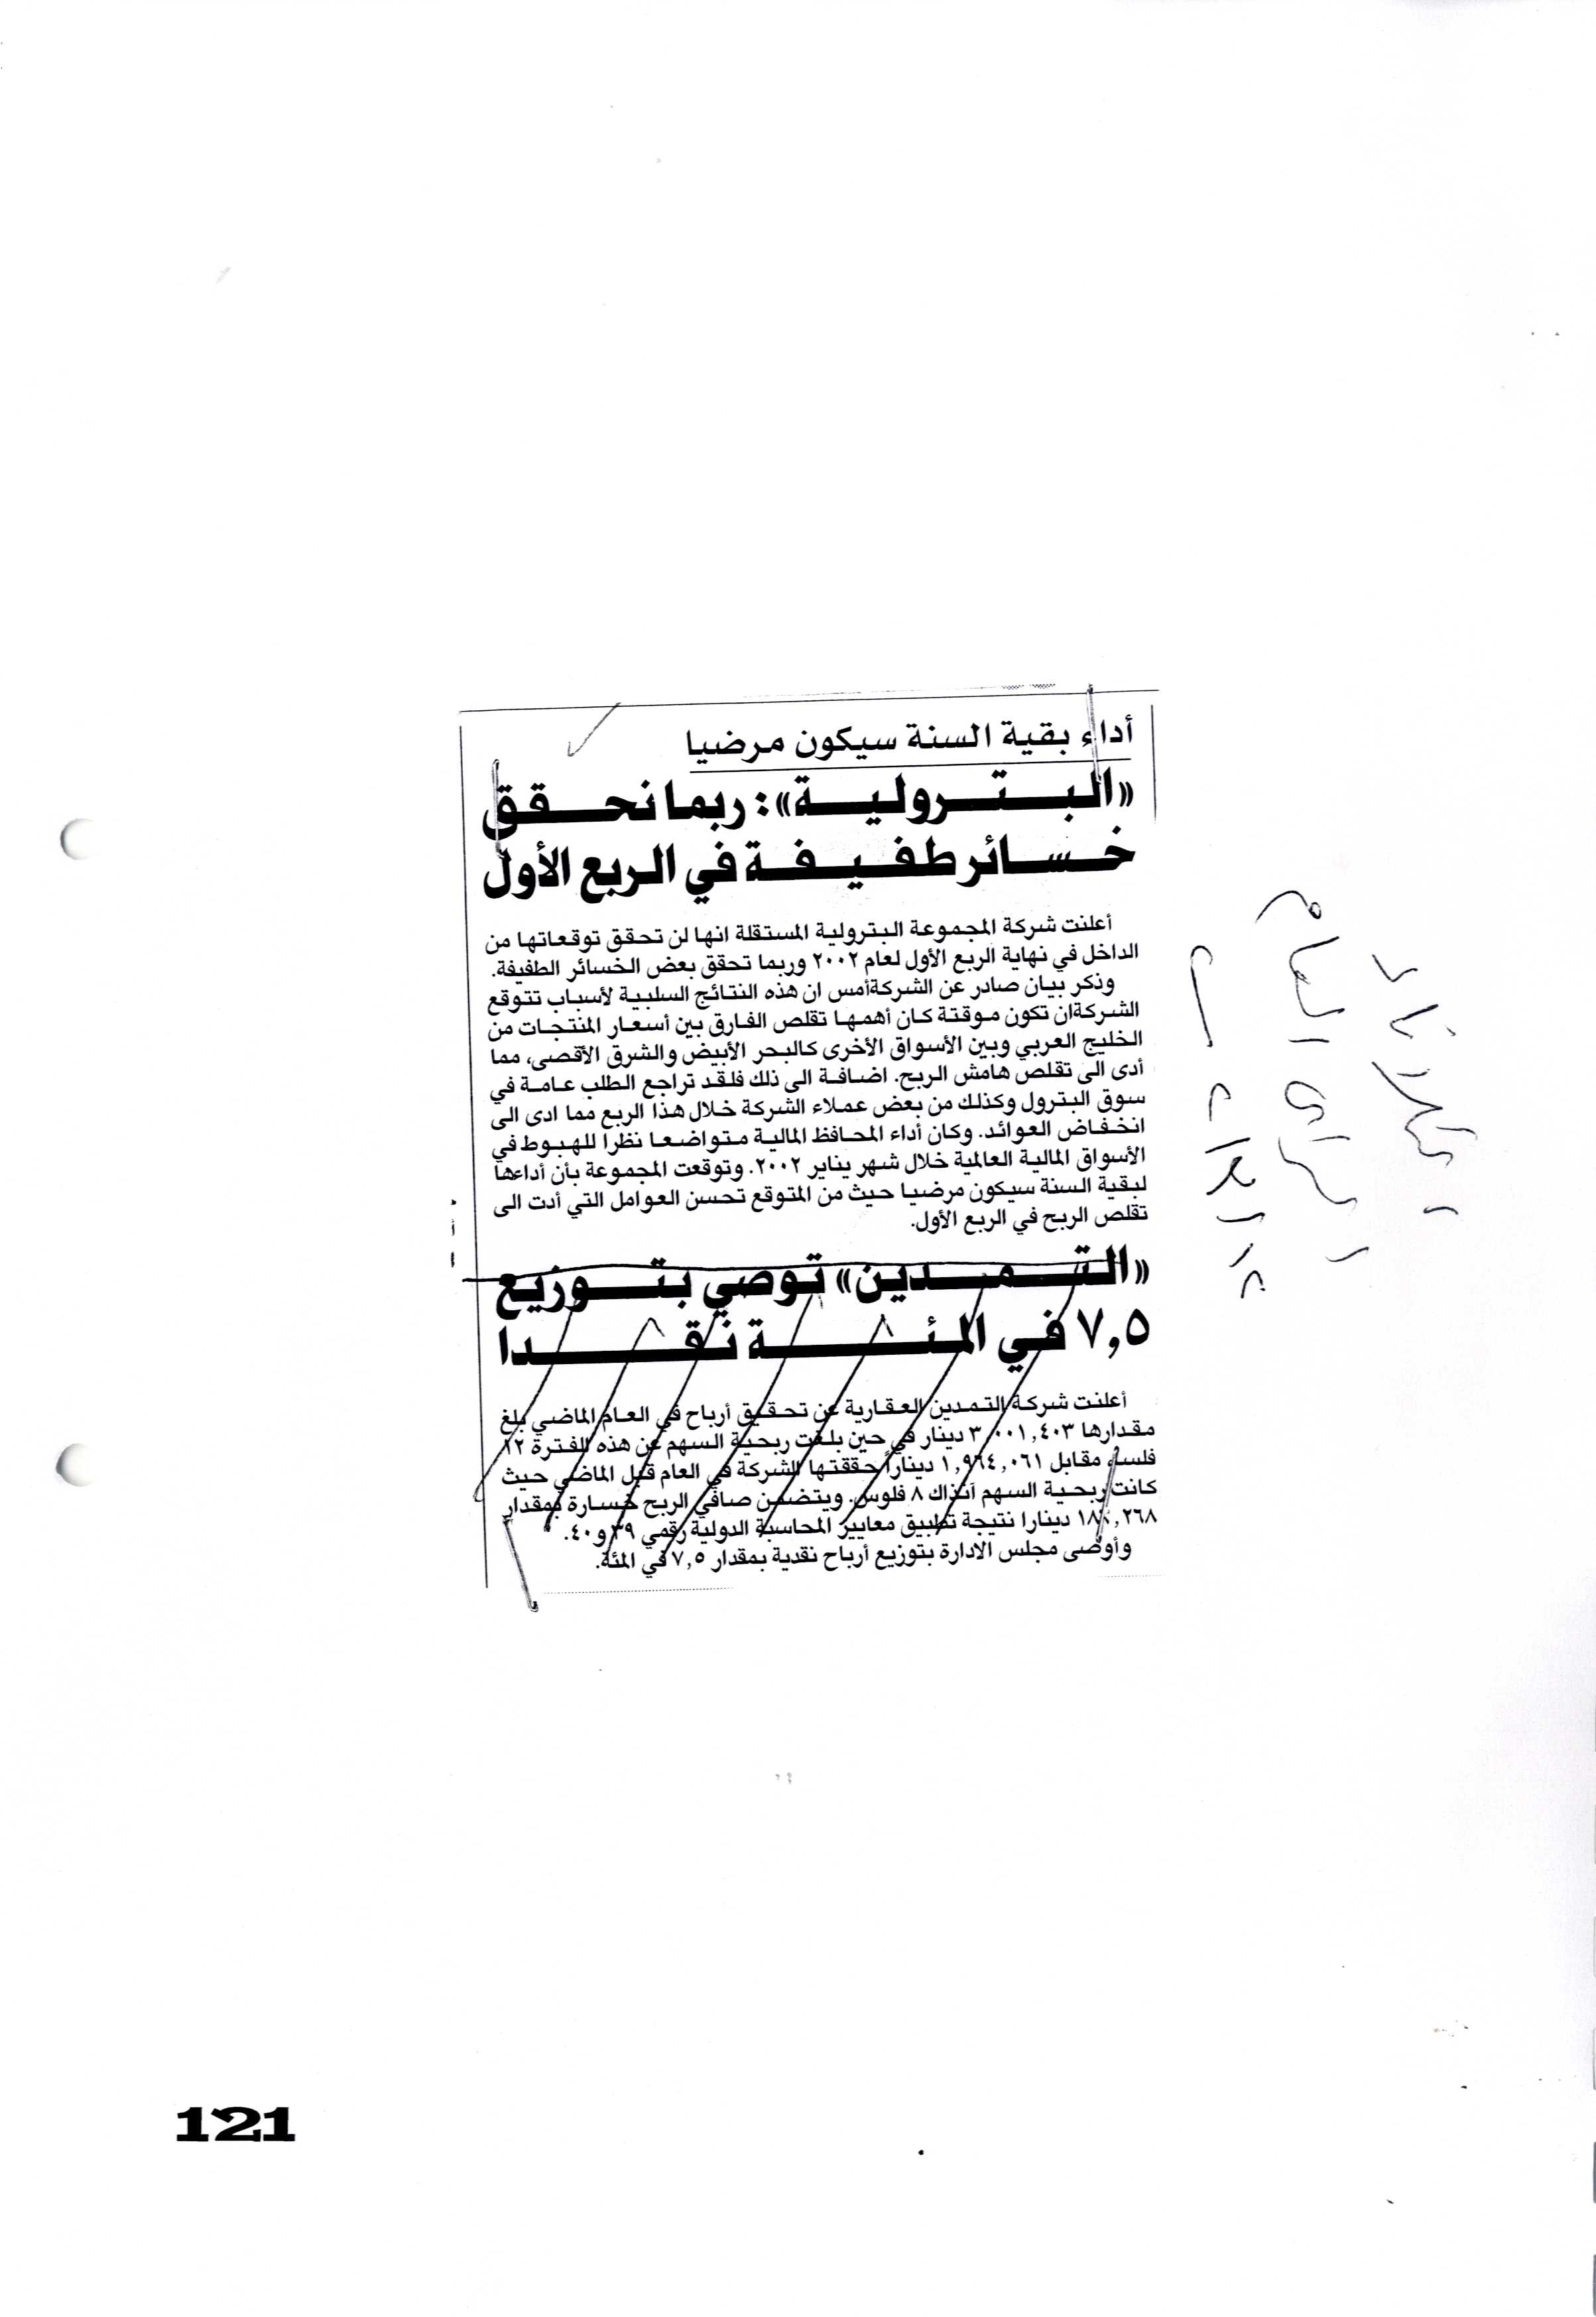 أداء بقية السنة سيكون مرضيا
«البترولية»: ربما نحقق
خسائر طفيفة في الربع الأول
أعلنت شركة المجموعة البترولية المستقلة انها لن تحقق توقعاتها من
الداخل في نهاية الربع الأول لعام ٢٠٠٢ وربما تحقق بعض الخسائر الطفيفة.
وذكر بيان صادر عن الشركة أمس ان هذه النتائج السلبية لأسباب تتوقع
الشركة ان تكون موقتة كان أهمها تقلص الفارق بين أسعار المنتجات من
الخليج العربي وبين الأسواق الأخرى كالبحر الأبيض والشرق الأقصى، مما
أدى الى تقلص هامش الربح. اضافة الى ذلك فلقد تراجع الطلب عامة في
سوق البترول وكذلك من بعض عملاء الشركة خلال هذا الربع مما ادى الى
انخفاض العوائد. وكان أداء المحافظ المالية متواضعا نظرا للهبوط في
الأسواق المالية العالمية خلال شهر يناير ٢٠٠٢. وتوقعت المجموعة بأن أداءها
لبقية السنة سيكون مرضيا حيث من المتوقع تحسن العوامل التي أدت الى
تقلص الربح في الربع الأول.
«التمدين» توصي بتوزيع
٧,٥ في المئة نقدا
أعلنت شركة التمدين العقارية عن تحقيق أرباح في العام الماضي بلغ
مقدارها ٣,٠٠١,٤٠٣ دينار في حين بلغت ربحية السهم عن هذه الفترة ١٢
فلسا، مقابل ١,٩٦٤,٠٦١ ديناراً حققتها الشركة في العام قبل الماضي حيث
كانت ربحية السهم آنذاك ٨ فلوس. ويتضمن صافي الربح خسارة بمقدار
دينارا نتيجة تطبيق معايير المحاسبة الدولية رقمي ٣٩ و٤٠.
وأوصى مجلس الادارة بتوزيع أرباح نقدية بمقدار ٧,٥ في المئة.
الرأي العام
121